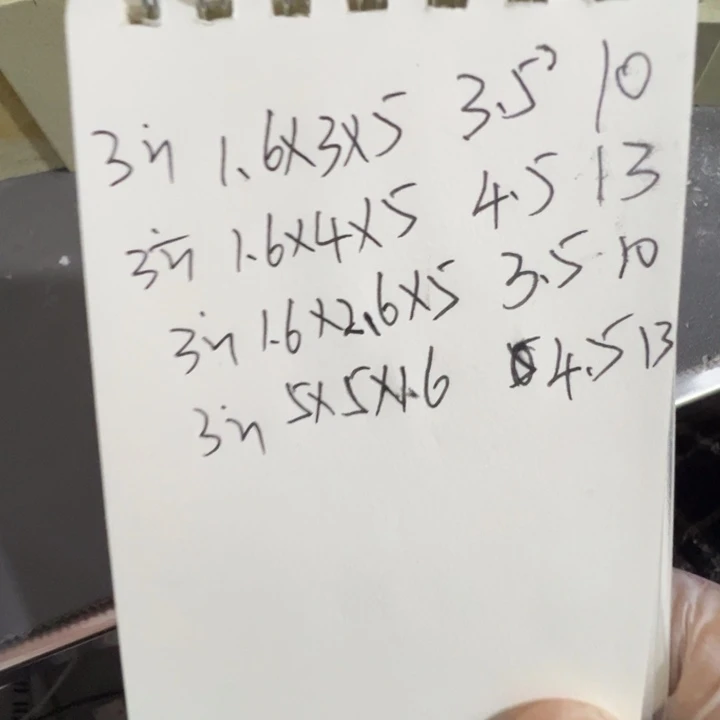 3in 1.6x3x5 3.5 10
3in 1.6x4x5 4.5 13
3in 1.6x2.6x5 3.5 10
3in 5x5x1.6 4.5 13